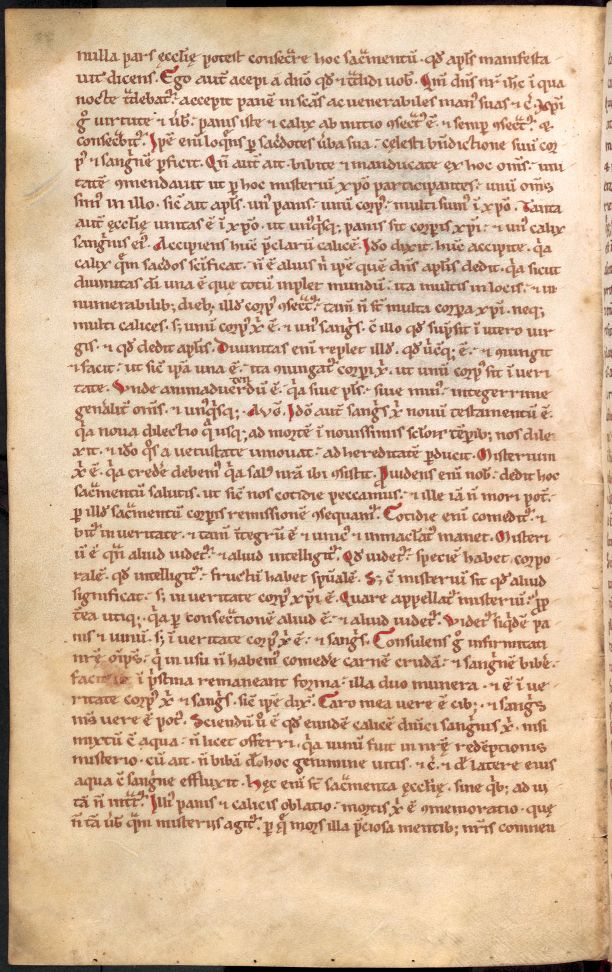 nulla pars ęcclię potest consecͬre hoc sacͬmentū · qđ apłs manifesta
uit dicens · Ego aut̄ acepi a dn̄o qđ ⁊ tͬdidi uob̄ · Qm̄ dn̄s nr̄ ih̄c ī qua
nocte tͬdebat᷒ · accepit panē in sc̄as ac uenerabiles man᷒ suas ⁊ c̄ · Xp̄i
g̊ uirtute ⁊ ūb᷒ · panis iste ⁊ calix ab initio 9secͬt᷒ ē · ⁊ semp̱ 9secͬt᷒ ·
consecͬbit᷒ · Ip̄e eni̅ loq̄ns p̱ sac̄dotes ūba sua · celesti bn̄dictione suū cor
p᷒ ⁊ sangⁱnē p̱ficit · Qn̄ aut̄ ait · bibite ⁊ manducate ex hoc om̄s · uni
tatē 9mendauit ut p̱ hoc misteriū xp̄o participantes · unū om̄s
sim᷒ in illo · sic̄ ait apłs · un᷒ panis · unū corp᷒ · multi sum᷒ ī xp̄o · Tanta
aut̄ ęcclię unitas ē ī xp̄o · ut un᷒qͥsq; panis sit corp̱is xp̄i · ⁊ un᷒ calix
sangⁱnis ei᷒ · Accipiens hunc p̄clarū calicē · Ido dixit · hunc accipite · qͣ
calix qͫ sac̄dos sc̄ificat · n̄ ē alius n̄ ip̄e quē dn̄s apłis dedit · qͣ sicut
diuinitas dī una ē que totū inplet mundū · ita multis in locis · ⁊ in
numerabilib; dieb; illđ corp᷒ 9secͬt᷒ · tam̄ n̄ st̄ multa corp̱a xp̄i · neq;
multi calices · s; unū corp᷒ x̄ ē · ⁊ un᷒ sangͥs · c̄ illo qđ sūpsit ī utero uir
gīs · ⁊ qđ dedit apłis · Diuinitas eni̅ replet illđ · qđ uƀq; ē · ⁊ 9iungit
⁊ facit · ut sic̄ ip̄a una ē · ita 9iungat᷒ corp̱i x̄ · ut unū corp᷒ sit ī ueri
tate · Unde animaduertendū ē · qͣ siue pl᷒s · siue min᷒ · integerrime
gen̄alit̄ om̄s · ⁊ un᷒qͥsq; · Ido aut̄ sangͥs x̄ nouū testamentū ē ·
qͣ noua dilectio qͣ usq; ad mortē ī nouissimis sclor̄ tēpib; nos dile
xit · ⁊ ido qͦs a uetustate innouat · ad hereditatē p̱ducit · Misterium
x̄ ē · qͣ crede̅ debem᷒ qͣ sal᷒ nr̄a ibi 9sistit · Prouidens eni̅ nob̄ · dedit hoc
sacͬmentū salutis · ut sic̄ nos cotidie peccamus · ⁊ ille iā n̄ mori pot̄ ·
p̱ illđ sacͬmentū corp̱is remissionē 9sequam᷒ · Cotidie eni̅ comedit᷒ · ⁊
bibit᷒ in ueritate · ⁊ tam̄ ītegrū ē ⁊ uiu᷒ ⁊ inmaclat᷒ manet · Misteri
ū ē qn̄ aliud uidet᷒ · ⁊ aliud intelligit᷒ · Qđ uidet᷒ · speciē habet corpo
ralē · qđ intelligit᷒ · fructū habet spūalē · S; c̄ misteriū sit qđ aliud
significat · s; in ueritate corp᷒ xp̄i ē · Quare appellat᷒ misteriū ·
t̄ea utiq; · qͣ p̱ consecͬtionē aliud ē · ⁊ aliud uidet᷒ · Videt᷒ siqͥdē pa
nis ⁊ uinū · s; ī ueritate corp᷒ x̄ ē · ⁊ sangͥs · Consulens g̊ infirmitati
nr̄ę om̄ps · qͥ in usu n̄ habem᷒ comede̅ carnē crudā · ⁊ sangͥnē bibe̅ ·
facit ī pⁱstina remaneant forma · illa duo munera · ⁊ ē ī ue
ritate corp᷒ x̄ ⁊ sangͥs · sic̄ ip̄e dix̄ · Caro mea uere ē cib; · ⁊ sangͥs
m̄s uere ē pot᷒ · Sciendū ū ē qđ eundē calicē dn̄ici sangⁱnis x̄ · nisi
mixtū c̄ aqua · n̄ licet offerri · qͣ uinū fuit in nr̄ę redēptionis
misterio · cū ait · n̄ bibā đ hoc genimine uitis · ⁊ c̄ · ⁊ đ latere eius
aqua c̄ sangͥne effluxit · Hęc eni̅ st̄ sacͬmenta ęcclię · sine qͥb; ad ui
tā n̄ intͬt᷒ · Illi᷒ panis ⁊ calicis oblatio · mortis x̄ ē 9memoratio · quę
n̄ tā ūƀ qͫ misteriis agit᷒ · p̱ qͤ mors illa p̄ciosa mentib; nr̄is commen